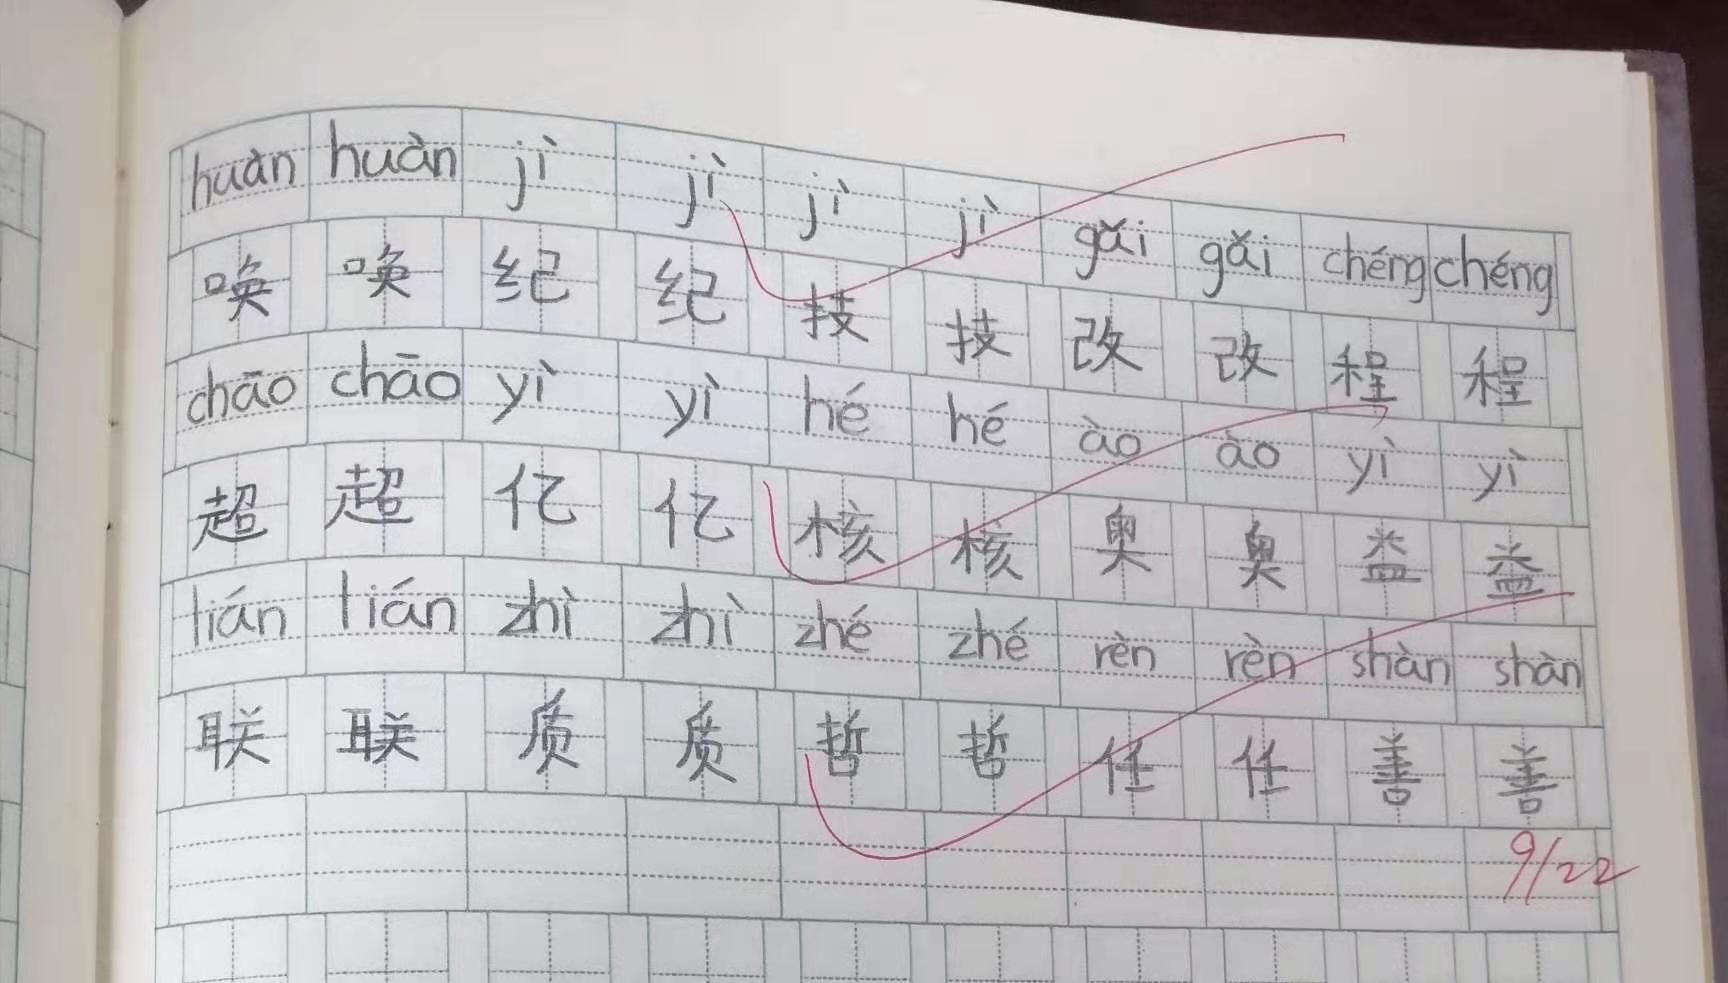 huàn huàn jì jì jì jì gǎi gǎi chéng chéng
唤 唤 纪 纪 技 技 改 改 程 程
chāo chāo yì yì hé hé ào ào yì yì
超 超 亿 亿 核 核 奥 奥 益 益
lián lián zhì zhì zhé zhé rèn rèn shàn shàn
联 联 质 质 哲 哲 任 任 善 善
9/22